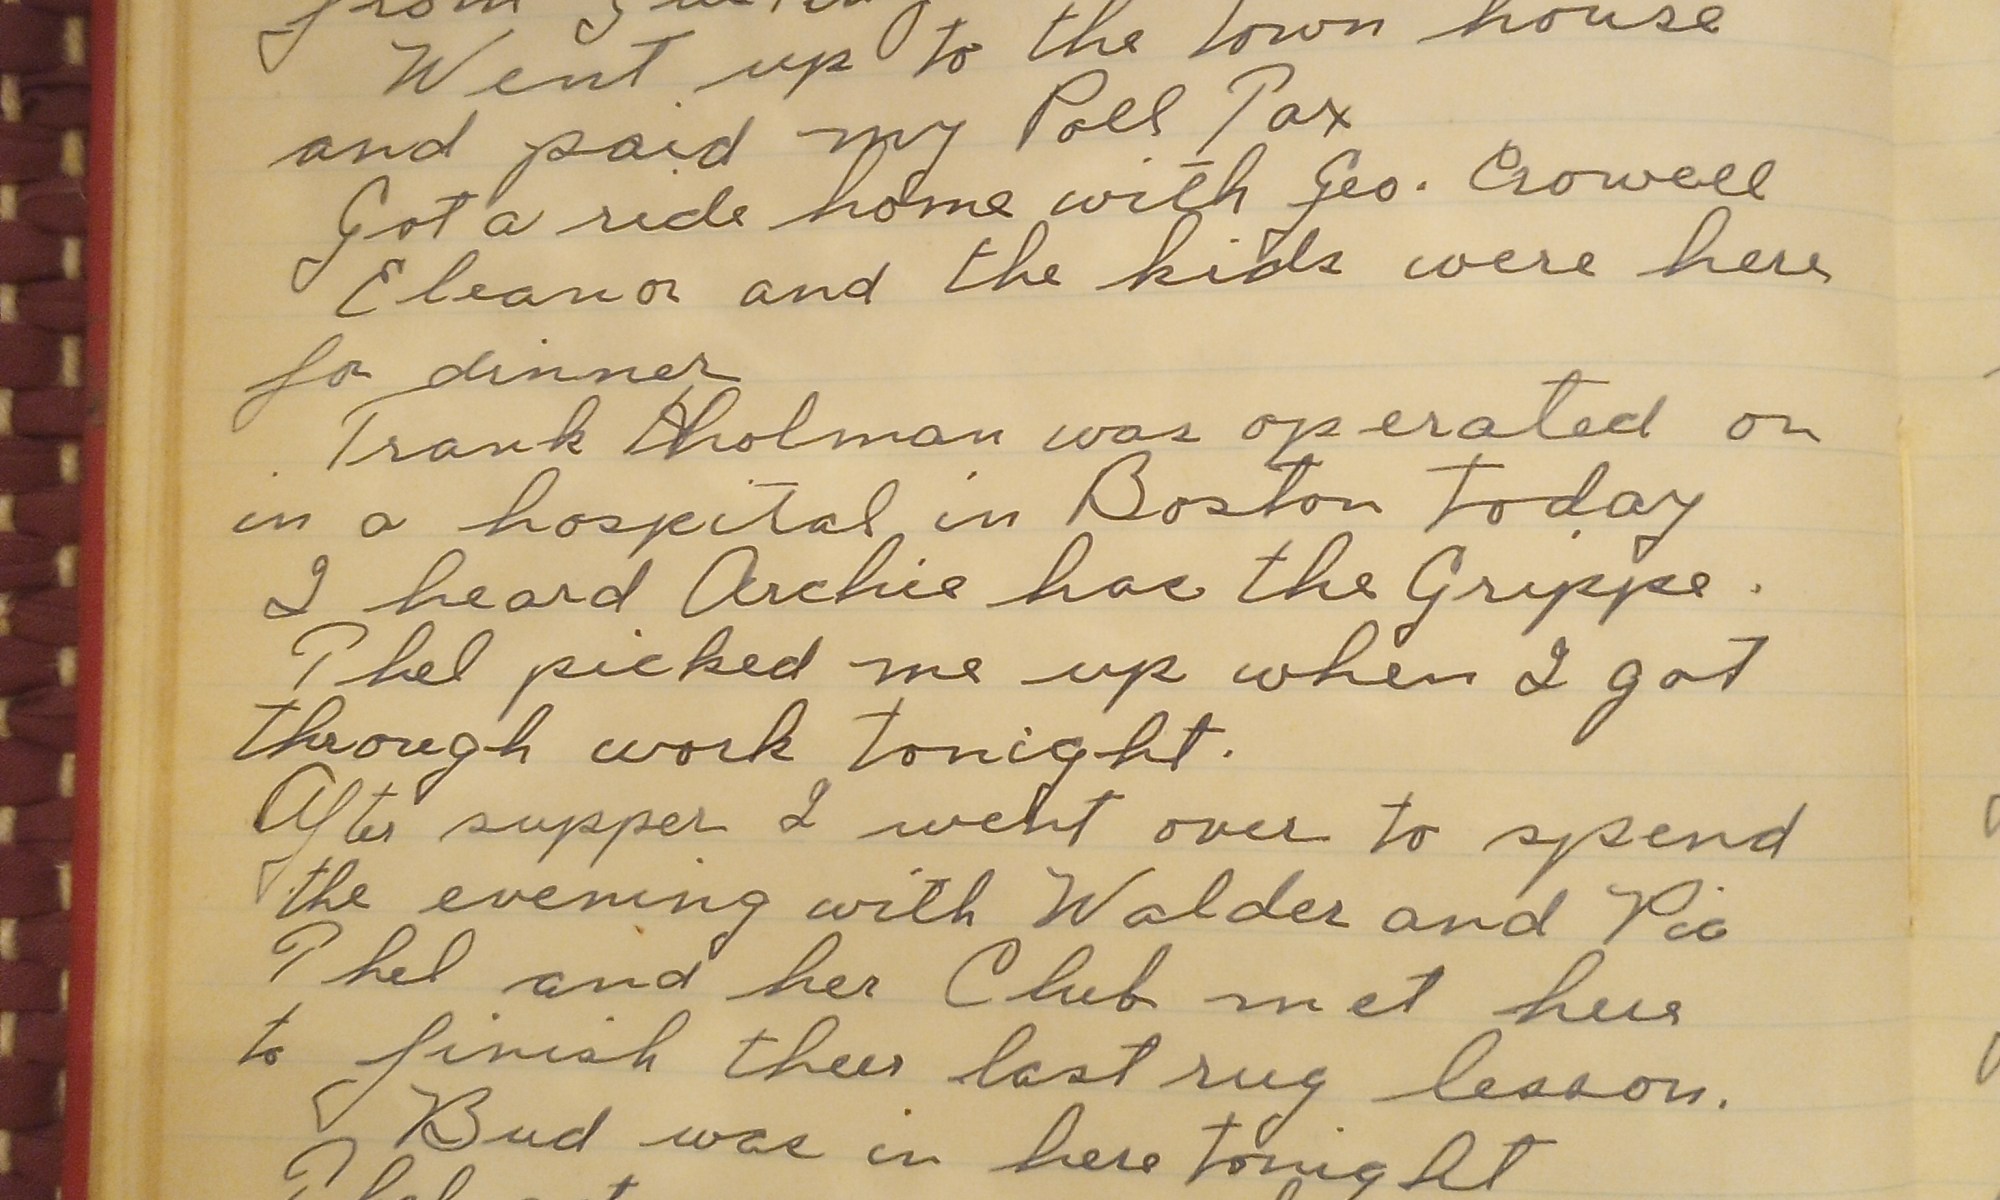 from
Went up to the town house
and paid my Poll Tax
Got a ride home with Geo. Crowell
Eleanor and the kids were here
for dinner
Frank Tholman was operated on
in a hospital in Boston today
I heard Archie has the Grippe.
Phel picked me up when I got
through work tonight.
After supper I went over to spend
the evening with Walder and Via
Phel and her Club met here
to finish their last rug lesson.
Bud was in here tonight
Phel